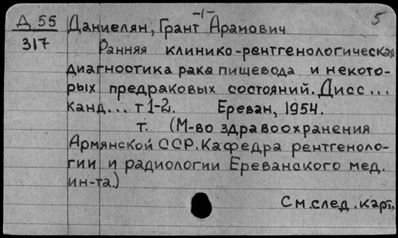 -1-
5
Д 55 Даниелян, Грант Арамович
317
Ранняя клинико-рентгенологическая
диагностика рака пищевода и некото-
рых предраковых состояний. Дисс...
канд... т 1-2. Ереван, 1954.
т. (М-во здравоохранения
Армянской ССР. Кафедра рентгеноло-
гии и радиологии Ереванского мед.
ин-та.)
См. след. карт.